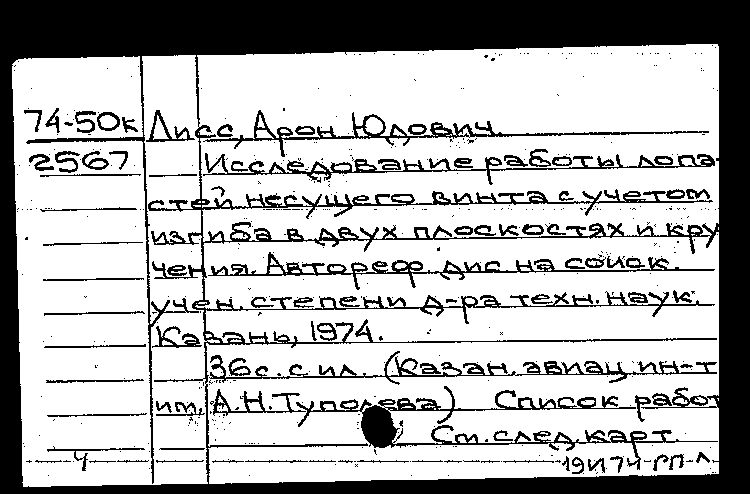 74-50к Лисс, Арон Юдович.
2567 Исследование работы лопа-
стей несущего винта с учетом
изгиба в двух плоскостях и кру
чения. Автореф. дис. на соиск.
учен. степени д-ра техн. наук.
Казань, 1974.
36с. с ил. (Казан. авиац. ин-т
им. А.Н.Туполева) Список работ
См. след. карт.
Ч 19И74 РП-Л